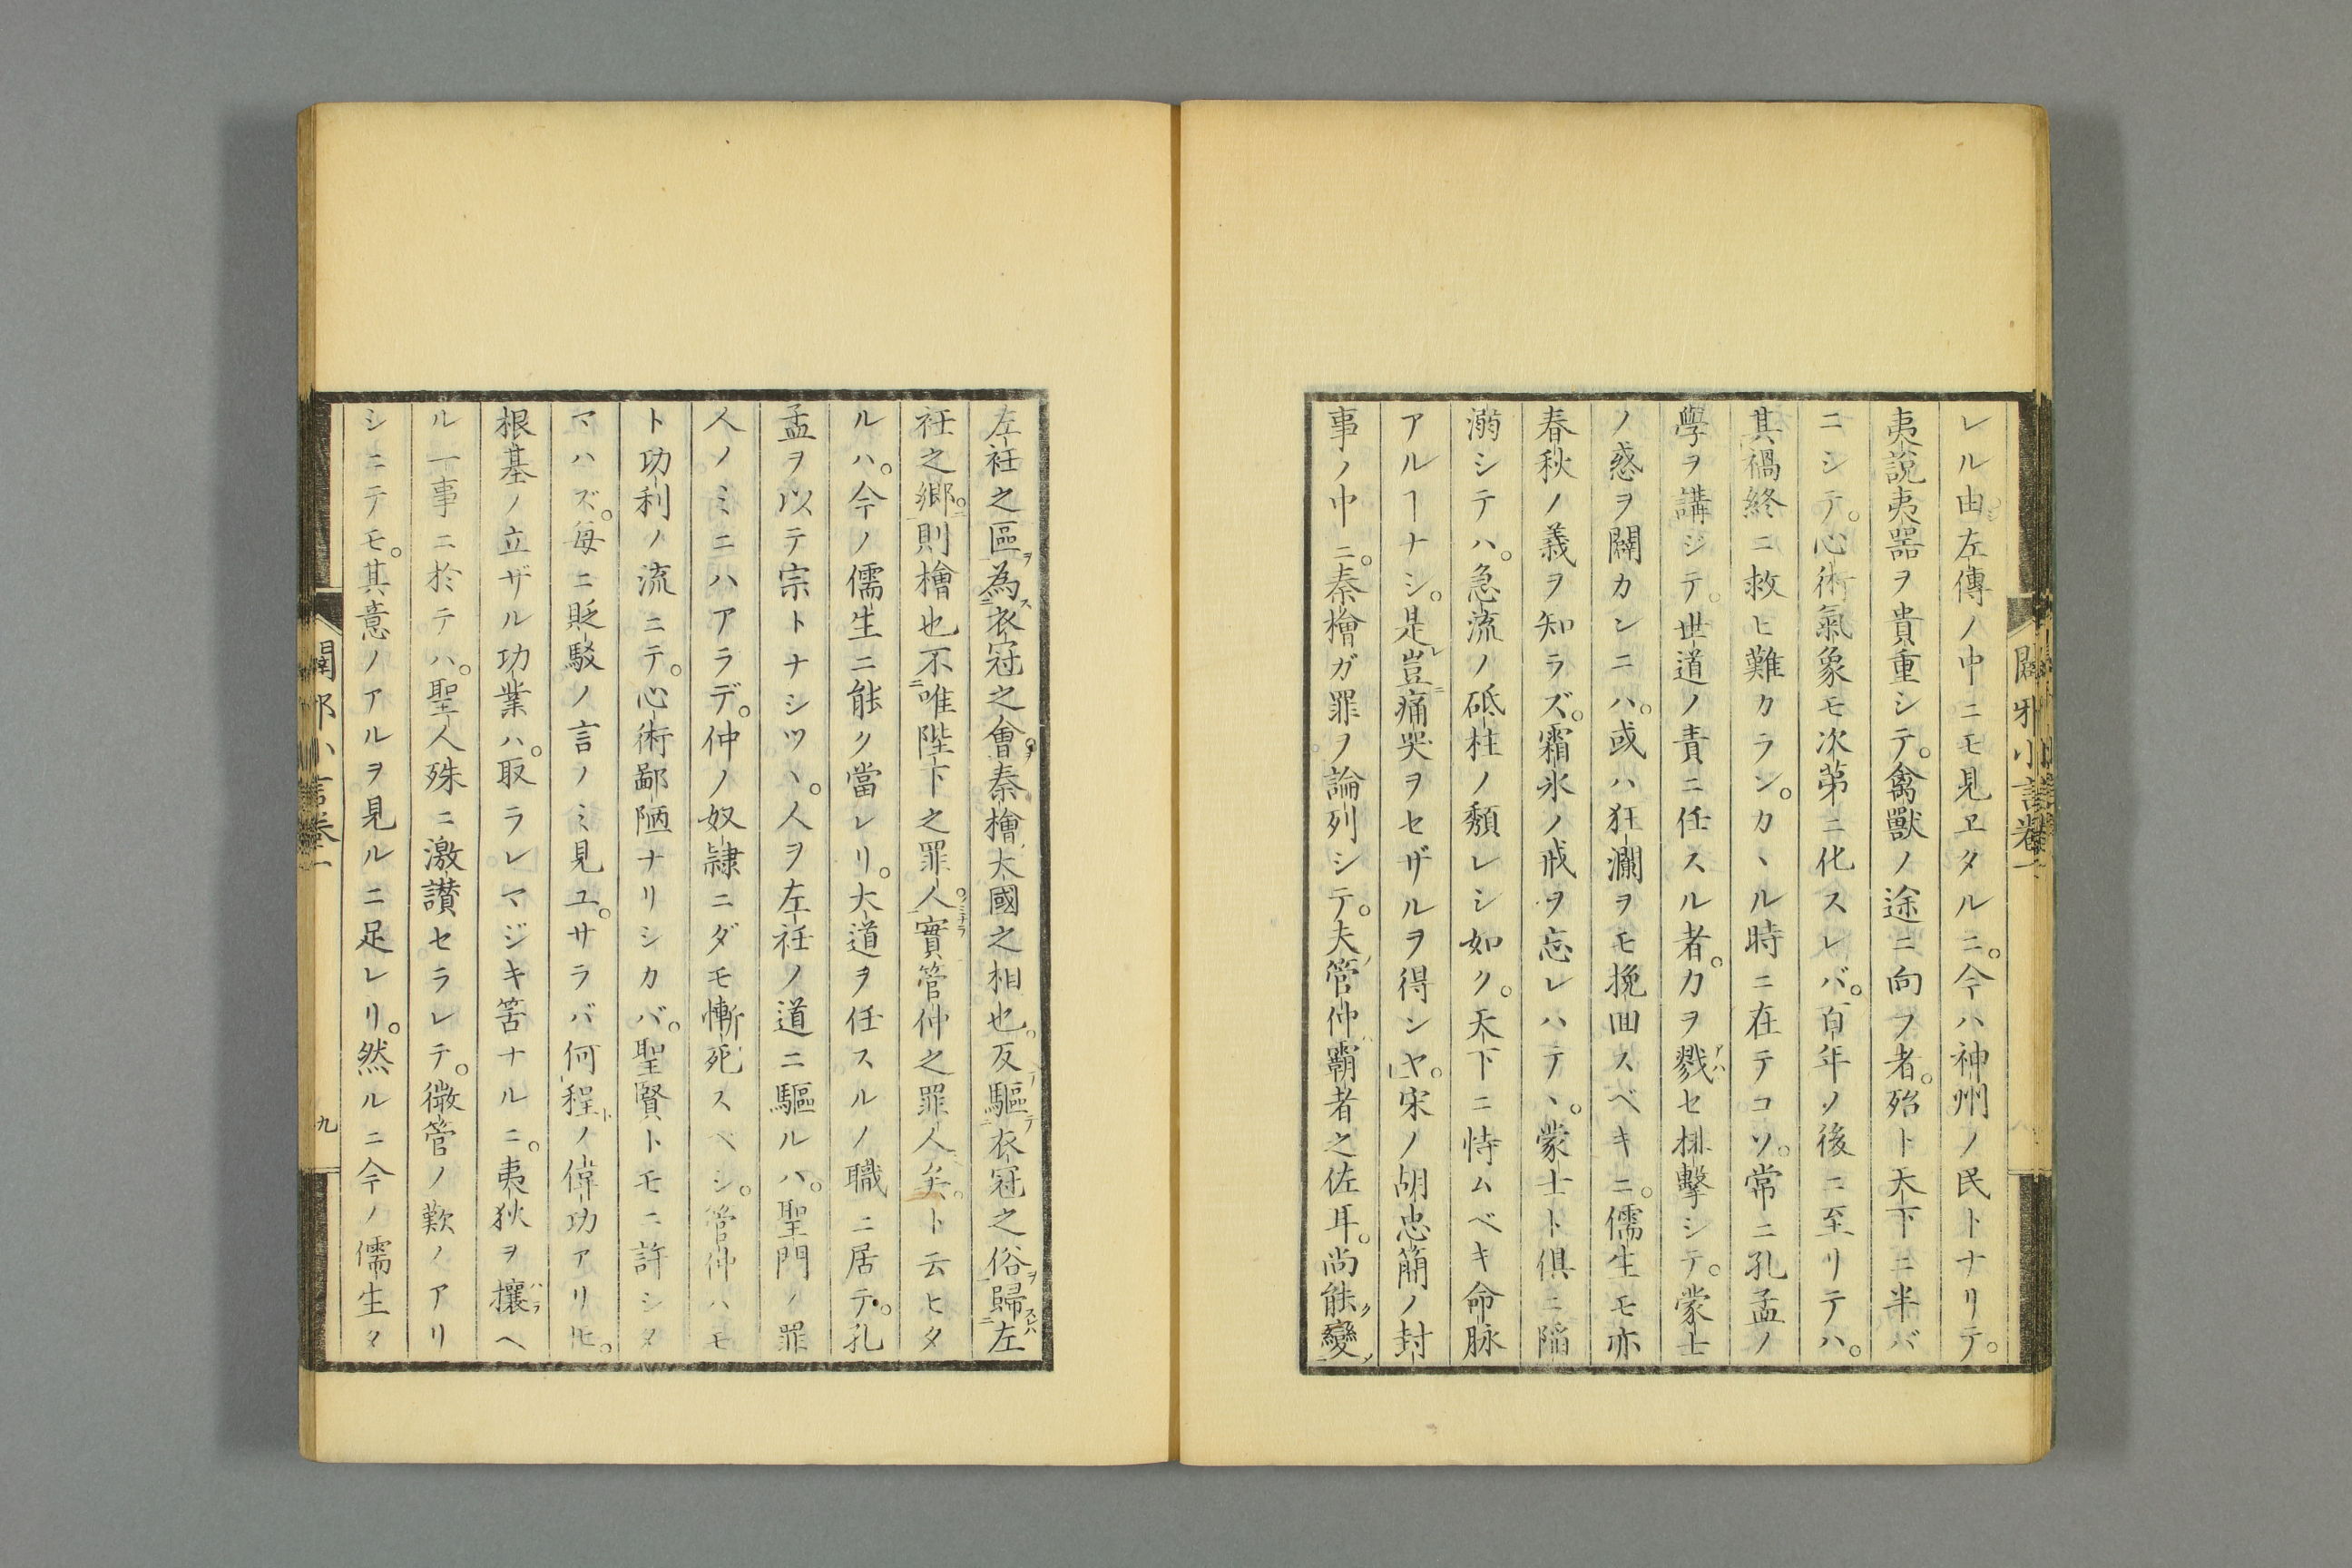 レル由左傳ノ中ニモ見ヱタルニ。今ハ神州ノ民トナリテ。
夷説夷噐ヲ貴重シテ。禽獸ノ途ニ向フ者。殆ト天下ニ半バ
ニシテ。心術氣象モ次第ニ化スレバ。百年ノ後ニ至リテハ。
其禍終ニ救ヒ難カラン。カヽル時ニ在テコソ。常ニ孔孟ノ
學ヲ講ジテ。世道ノ責ニ任スル者。力ヲ戮セ排擊シテ。蒙士
ノ惑ヲ闢カンニハ。或ハ狂瀾ヲモ挽回スベキニ。儒生モ亦
春秋ノ義ヲ知ラズ。霜氷ノ戒ヲ忘レハテヽ。蒙士ト倶ニ陥
溺シテハ。急流ノ砥柱ノ頽レシ如ク。天下ニ恃ムベキ命脉
アルヿナシ。是豈痛哭ヲセザルヲ得ンヤ。宋ノ胡忠簡ノ封
事ノ中ニ。秦檜ガ罪ヲ論列シテ。夫管仲覇者之佐耳。尚能變
左衽之區為衣冠之會。秦檜大國之相也。反驅衣冠之俗歸左
衽之郷。則檜也不唯陛下之罪人。實管仲之罪人矣。ト云ヒタ
ルハ。今ノ儒生ニ能ク當レリ。大道ヲ任スルノ職ニ居テ。孔
孟ヲ以テ宗トナシツヽ。人ヲ左衽ノ道ニ驅ルハ。聖門ノ罪
人ノミニハアラデ。仲ノ奴隷ニダモ慚死スベシ。管仲ハモ
ト功利ノ流ニテ。心術鄙陋ナリシカバ。聖賢トモニ許シタ
マハズ。毎ニ貶駁ノ言ノミ見ユ。サラバ何程ノ偉功アリ𪜈。
根基ノ立ザル功業ハ。取ラレマジキ筈ナルニ。夷狄ヲ攘ヘ
ル一事ニ於テハ。聖人殊ニ激讃セラレテ。微管ノ歎ノアリ
シニテモ。其意ノアルヲ見ルニ足レリ。然ルニ今ノ儒生タ
闢邪小言卷一
九